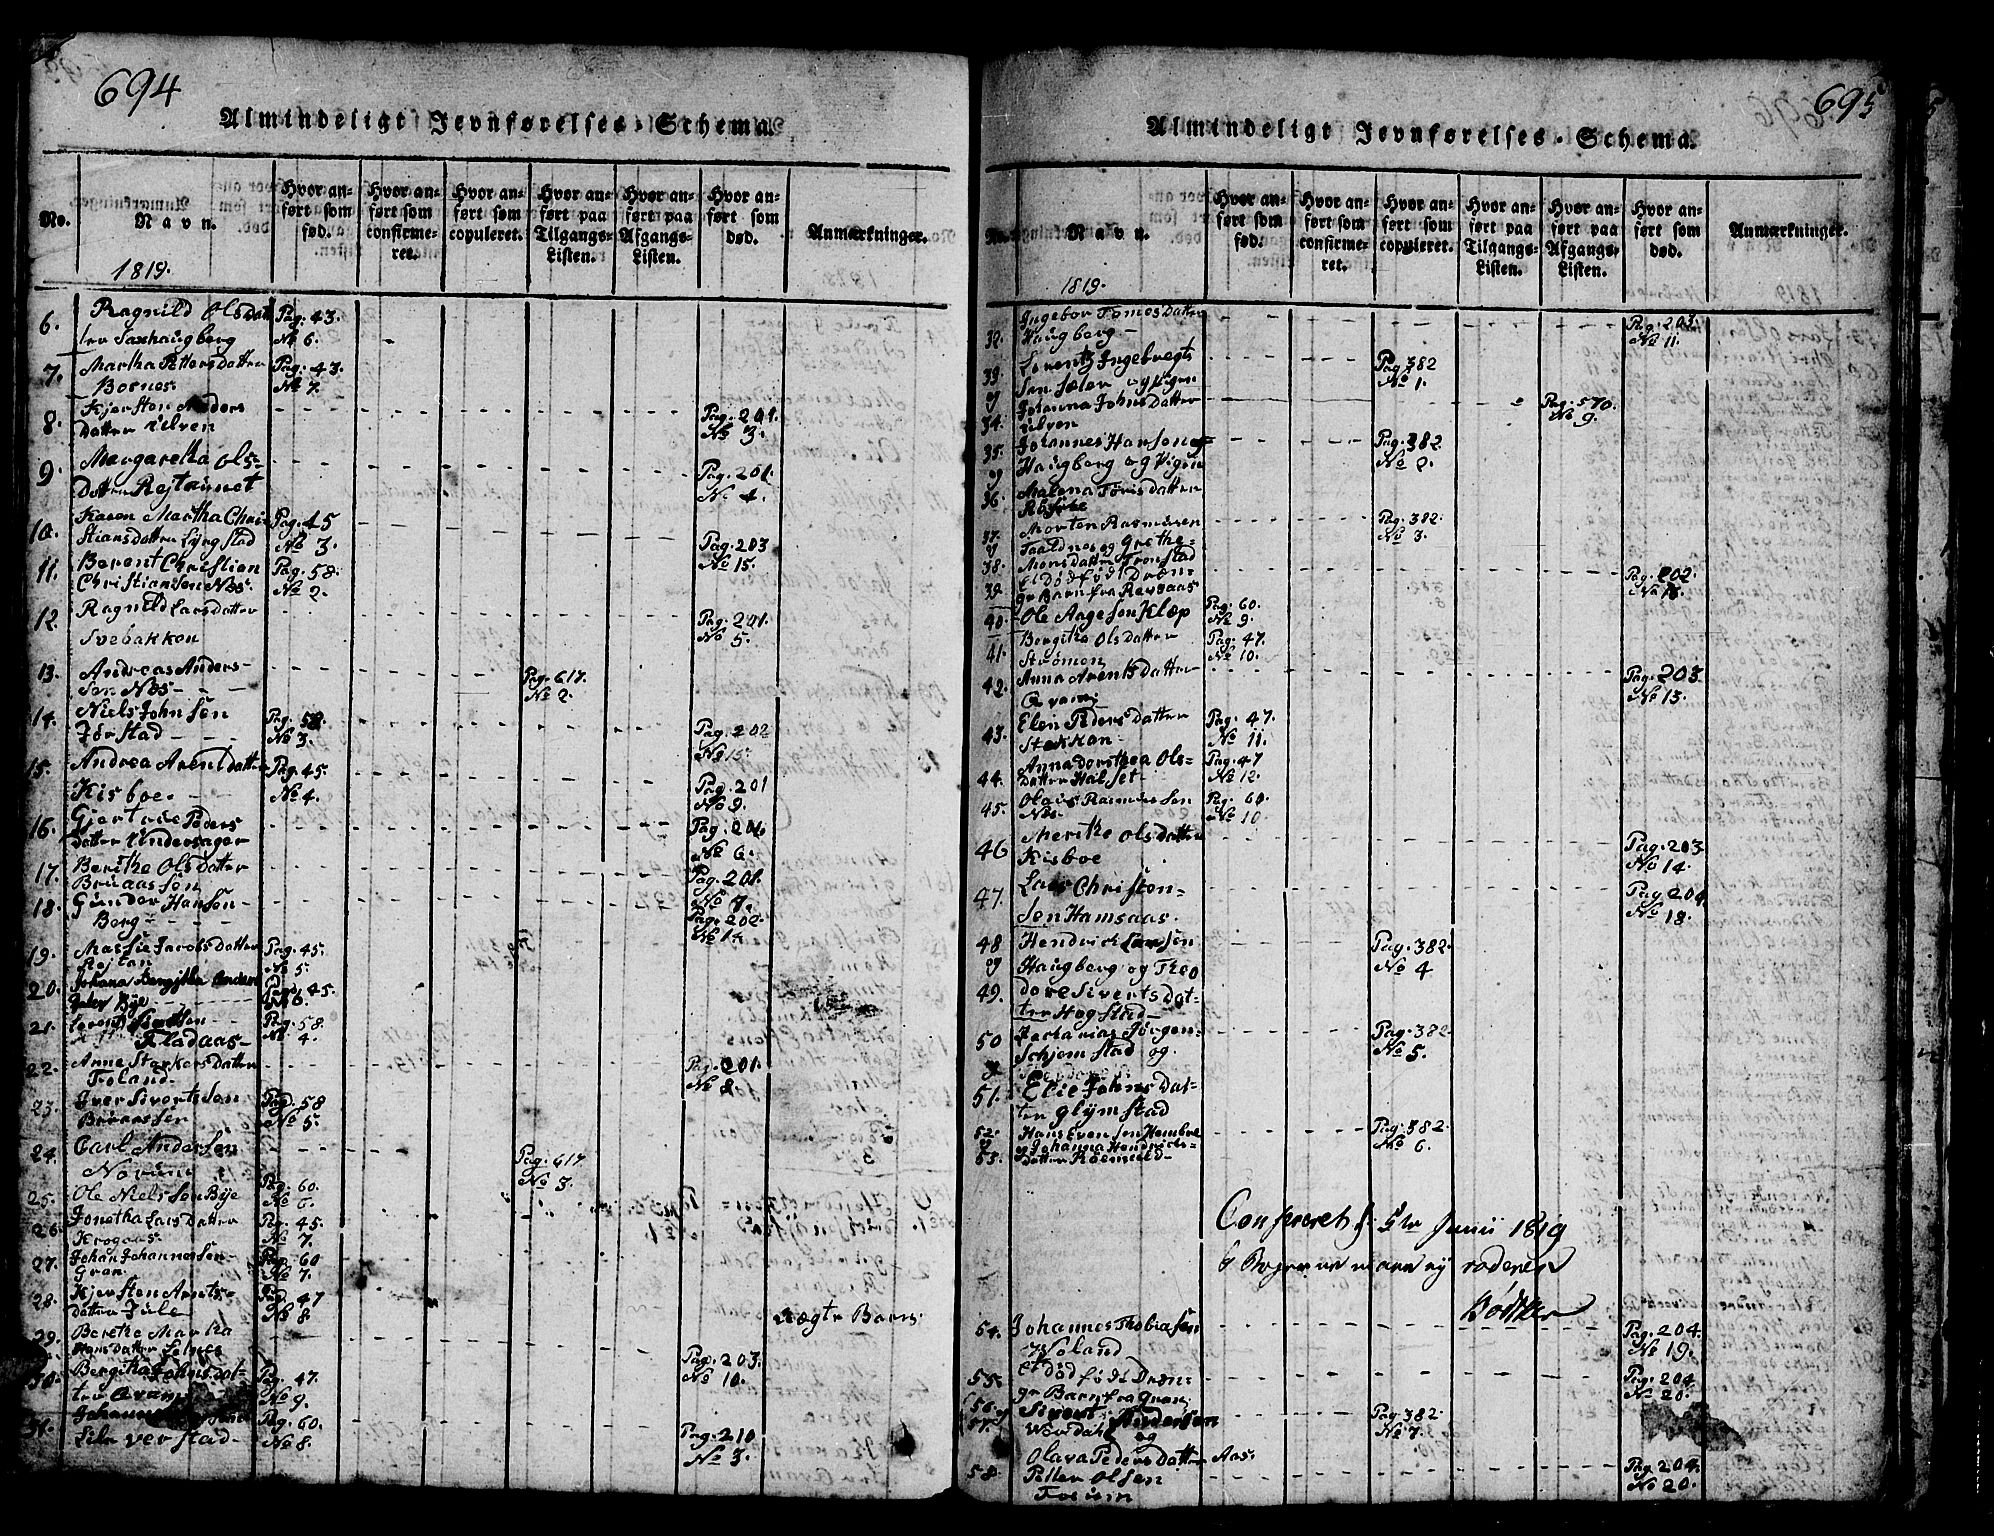 694
Almindeligt Jevnførelses-Schema.
No.
Navn.
Hvor anført som fød.
Hvor anført som confirmeret.
Hvor anført som copuleret.
Hvor anført paa Tilgangs-Listen.
Hvor anført paa Afgangs-Listen.
Hvor anført som død.
Anmærkninger.
1819.
6. Ragnild OlsDatter Saxhaugberg Pag: 43. No 6.
7. Martha PettersDatter Bornes Pag: 43. No 7.
8. Kjersten Anders Datter Ulven Pag. 201. No 3.
9. Margaretha Ols-Datter Rejtrunet Pag. 201. No 4.
10. Karen Martha ChristiansDatter Lyngstad Pag. 45 No 3. Pag. 203 No 15.
11. Berent Christian Christiansen Næs Pag. 58. No 2.
12. Ragnild LarsDatter Svebakken Pag. 201. No 5.
13. Andreas Andersen Næs Pag. 617. No 2.
14. Niels Johnsen Jørstad Pag. 58. No 3. Pag. 202 No 15.
15. Andrea ArentDatter Kisboe Pag. 45. No 4. Pag. 201 No 9.
16. Gjertrue Peders Datter Undersager Pag. 201. No 6.
17. Berithe OlsDatter Bruaassen Pag. 201. No 7.
18. Gunder Hansen Berg Pag. 202. No 14.
19. Massie JacobsDatter Rejtan Pag. 45. No 5.
20. Johana Bergitha Bye Pag. 45. No 6.
21. Fladaas Pag. 58. No 4.
22. Anne StorkersDatter Foland Pag. 201. No 8.
23. Iver Sivertsen Bruaassen Pag. 58 No 5.
24. Carl Andersen Norum Pag. 617 No 3.
25. Ole Nielssen Bye Pag. 60. No 6.
26. Jonetha LarsDatter Krogaas Pag. 45. No 7.
27. Johan Johannessen Gran Pag. 60 No 7.
28. Kjersten Arnts-Datter Jule Pag. 47 No 8.
Uægte Barn.
29. Berethe Martha HansDatter Pag. 203. No 10.
30. Bergitha JohnsDatter Qvam Pag. 47. No 9.
31. Johannes Silverstad Pag. 60. No 8. Pag. 210 No 3.
695
Almindeligt Jevnførelses-Schema.
No.
Navn.
Hvor anført som fød.
Hvor anført som confirmeret.
Hvor anført som copuleret.
Hvor anført paa Tilgangs-Listen.
Hvor anført paa Afgangs-Listen.
Hvor anført som død.
Anmærkninger.
1819.
32. Ingebor TomesDatter Haugberg Pag. 203. No 11.
33. Lorentz Ingebregtsen Seler og Pigen Pag. 382 No 1.
og 34. Johanna JohnsDatter Ulven Pag. 570. No 9.
35. Johannes Hansen Haugberg og Pigen Pag. 382. No 2.
og 36. Malena TørisDatter
37. Morten Rasmussen og Grethe Pag. 382. No 3.
og 38. MonsDatter Tronstad
39. Et Dødfødt Drenge Barn fra Pag. 202. No 18.
40. Ole Aagesen Klæp Pag. 60. No 9.
41. Bergitha OlsDatter Strømen Pag. 47. No 10.
42. Anna ArentsDatter Qvam Pag. 203. No 13.
43. Elen PedersDatter Stokkan Pag. 47. No 11.
44. Anna Dorothea Ols-Datter Halset Pag. 47 No 12.
45. Olaus Rasmussen Næs Pag. 60. No 10.
46 Merethe OlsDatter Kisboe Pag. 203 No 14.
47. Lars Christensen Hamsaas. Pag. 204 No 18.
48 Hendrick Larsen Pag. 382. No 4
og Haugberg og Theo
49. dore Siverts Datter Hogstad
50 Zacharias Jørgen-Schjemstad og Pag. 382 No 5.
51. Elie Johns Datter Glymstad
52. Hans Evensen Hemboe Pag. 382. No 6.
og 53. Johanna HendricksDatter
Confereret d. 5te Junii 1819
Bødtker
54. Johannes Thobiasen Woland Pag. 204. No 19.
55. Et dødfødt Drenge Barn fra Gran Pag. 204. No 20.
56. og 57. Sivert Andersen Wordahl og Olava PedersDatter Aas. Pag. 382 No 7.
58. Petter Olsen Foeinn Pag. 204. No 20.